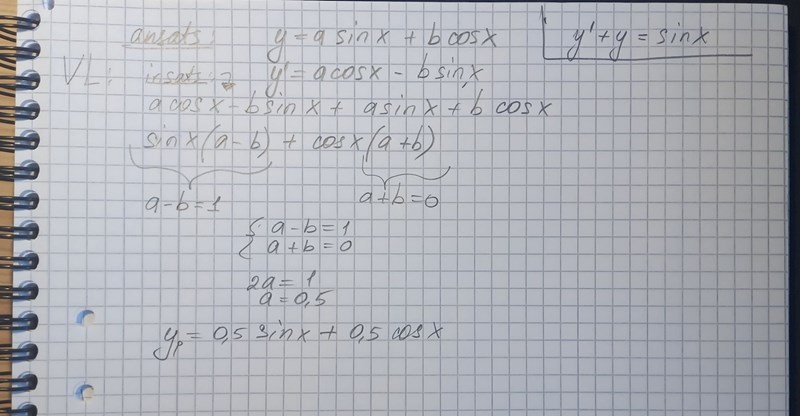 ansats: y = a sin x + b cos x
y' + y = sin x
VL: insats: y' = a cos x - b sin x
a cos x - b sin x + a sin x + b cos x
sin x (a - b) + cos x (a + b)
a - b = 1 a + b = 0
{ a - b = 1
a + b = 0
2a = 1
a = 0,5
yp = 0,5 sin x + 0,5 cos x